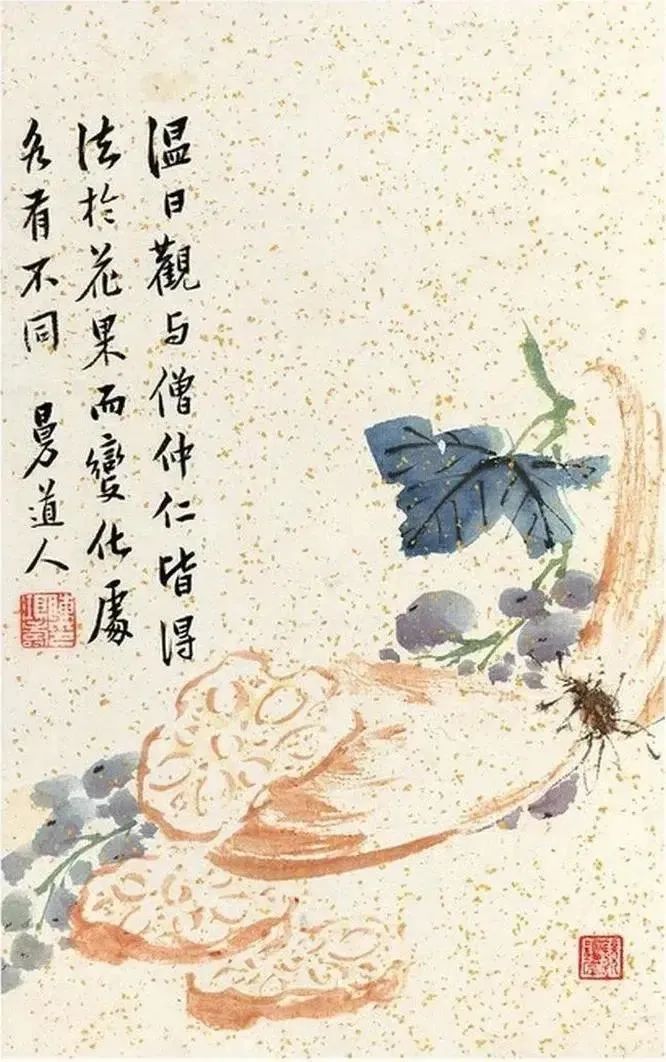 温日觀与僧仲仁皆得
法於花果而變化處
各有不同 曼道人